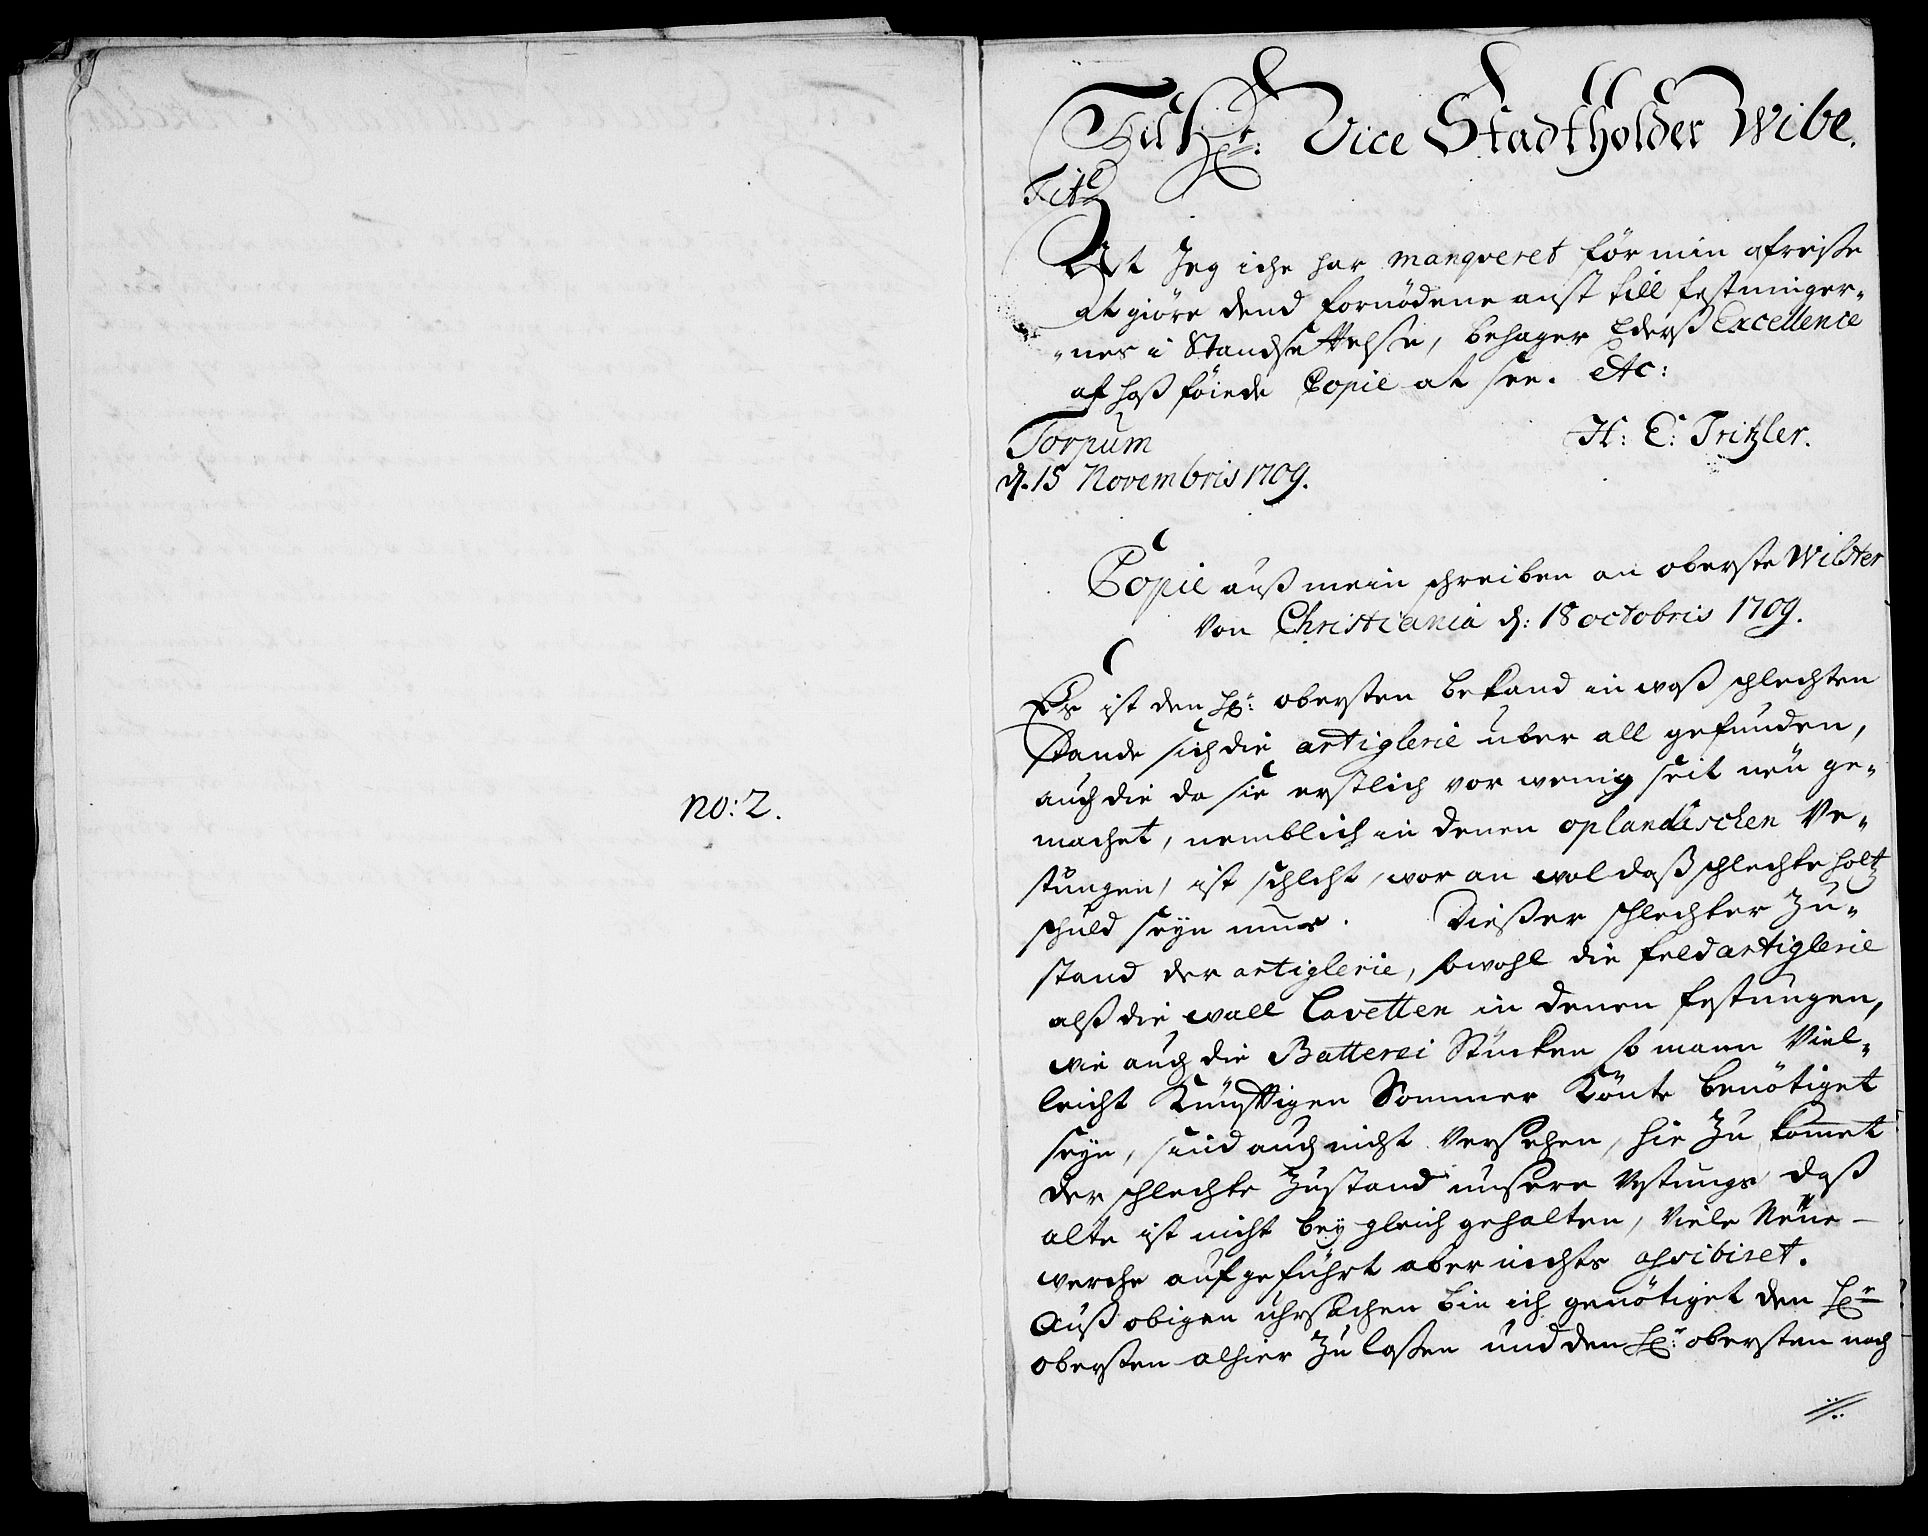 no: 2.
Till Hr: Vice Stadtholder Wibe.
Titl
At Jeg iche har manqveret för min afreise
at giöre dend fornödene anst till festninger„
„nes i Standsettelse, behager Eders Excellence
af hoß föiede Copie at see. etc:
Torpum
H: C: Tritzler.
d. 15 Novembris 1709.
Copie auß mein schreiben an oberste Wilster
von Christiania d: 18 octobris 1709.
Es ist den Hr: obersten bekand in waß schlechten
stande sich die artiglerie uber all gefunden,
auch die da sie erstlich vor wenig Zeit neü ge„
machet, nemblich in denen oplandischen Ve„
stungen, ist schlcht, wor an wol daß schlechte holtz
schuld seyn mus. Dießer schlechter Zu„
stand der artiglerie, sowohl die feldartiglerie
alß die wall Lavetten in denen festungen,
wie auch die Batterei Stücken so mann Viel„
leicht Künfftigen Sommer Könte benötiget
seyn, sind auch nicht versehen, hie Zu komet
der schlechte Zustand unsere Vestungs daß
alte ist nicht bey gleich gehalten, Viele Neüe
werche aufgeführt aber nichts
Auß obigen uhrsachen bin ich genötiget den Hr
obersten alhier Zu laßen und den Hr: obersten nach